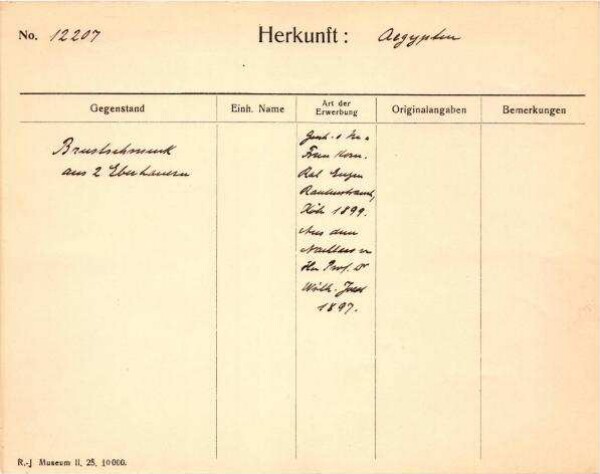 No. 12207 Herkunft: Aegypten
Gegenstand Einh. Name Art der Erwerbung Originalangaben Bemerkungen
Brustschmuck
aus 2 Eberhauern
Gesch. d. Hr. u.
Frau Kom.
Rat Eugen
Rautenstrauch,
Köln 1899.
Aus dem
Nachlass v.
Hn Prof. Dr
Wilh. Joest
1897.
R.-J Museum II. 25. 10000.